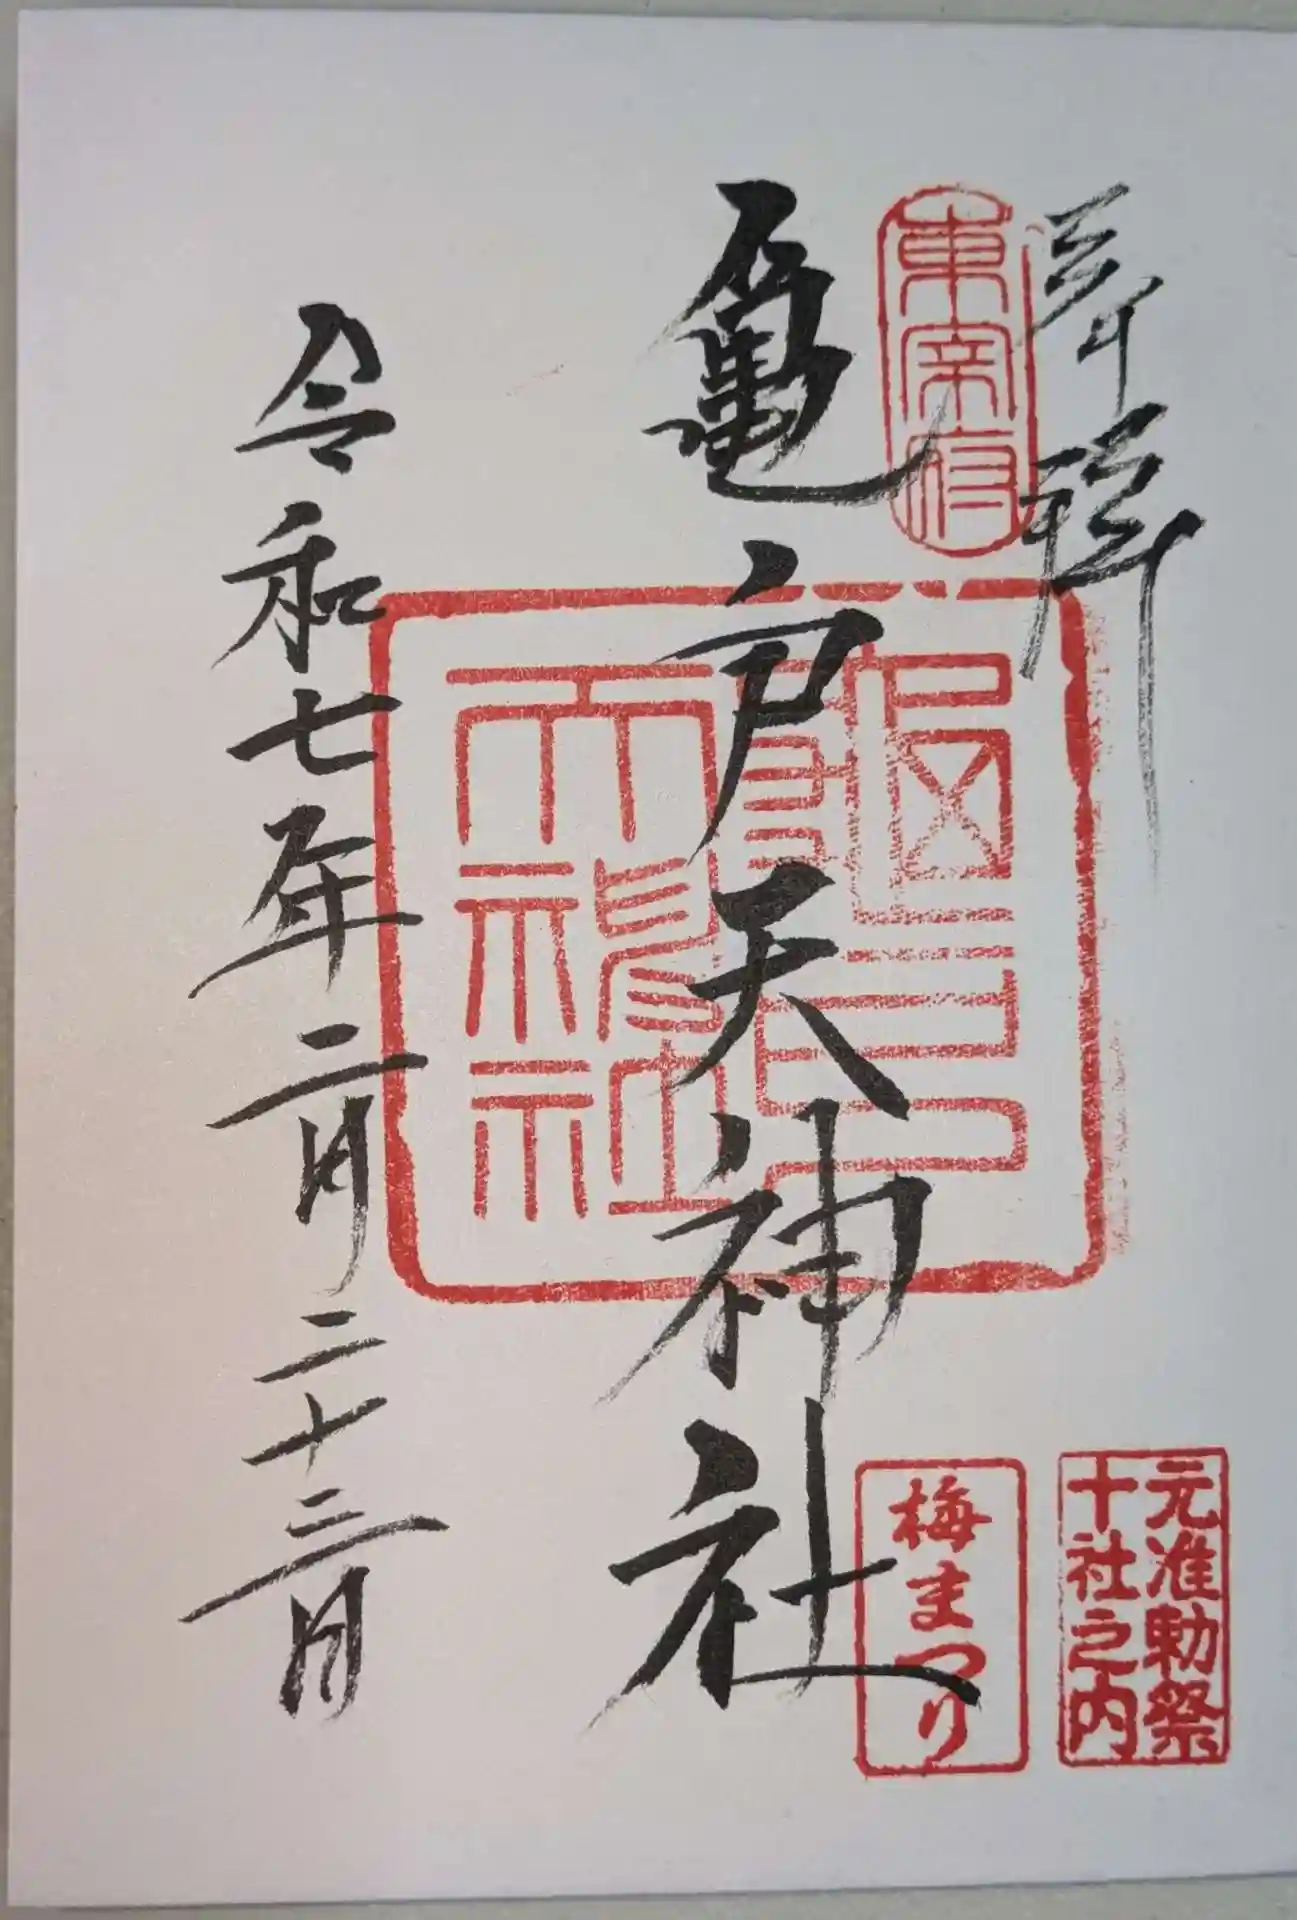 奉拝
東宰府
亀戸天神社
天神社
元准勅祭
十社之内
梅まつり
令和七年二月二十三日